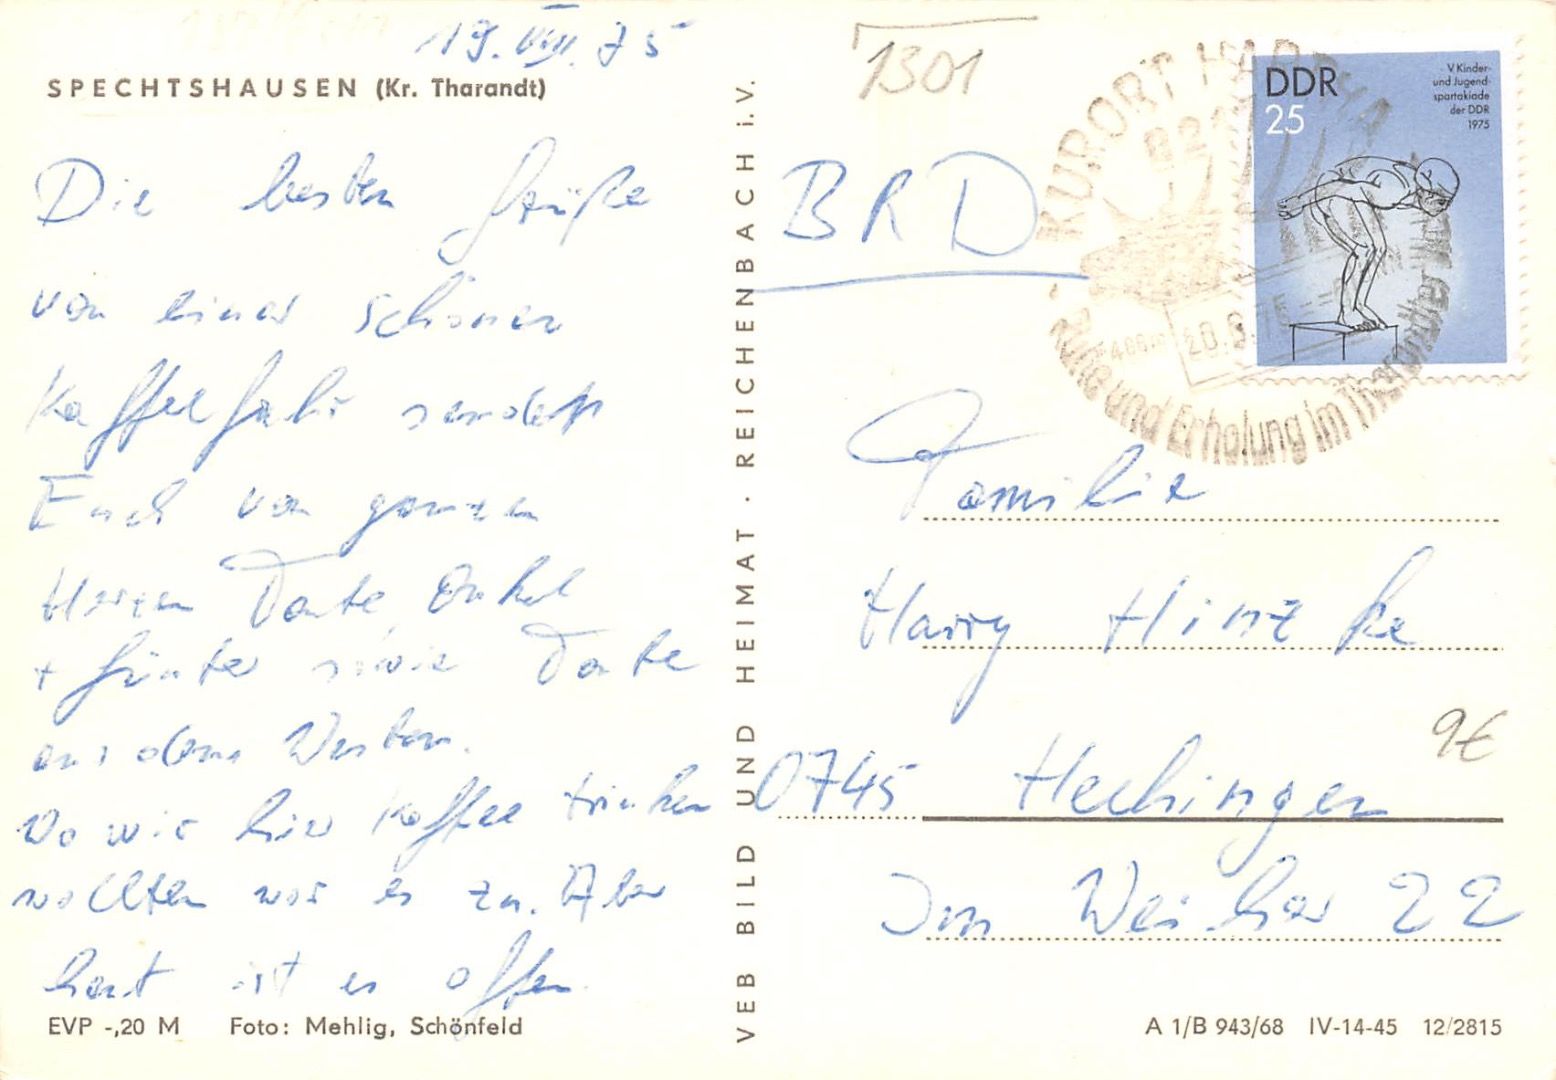 19. VIII. 75
SPECHTSHAUSEN (Kr. Tharandt)
Die besten Grüße
von einer schönen
Kaffeefahrt sendet
Euch von ganzen
Herzen Tante, Onkel
+ Günter sowie Tante
aus dem Westen.
Wo wir hier Kaffee trinken
wollten war es zu. Aber
heut ist es offen.
EVP -,20 M Foto: Mehlig, Schönfeld
VEB BILD UND HEIMAT · REICHENBACH i.V.
1301
BRD
KURORT HARTHA
400m
Ruhe und Erholung im Tharandter Wald
DDR
25
V Kinder-
und Jugend-
spartakiade
der DDR
1975
Familie
Harry Hinzke
9€
0745 Hechingen
Im Weiher 22
A 1/B 943/68 IV-14-45 12/2815